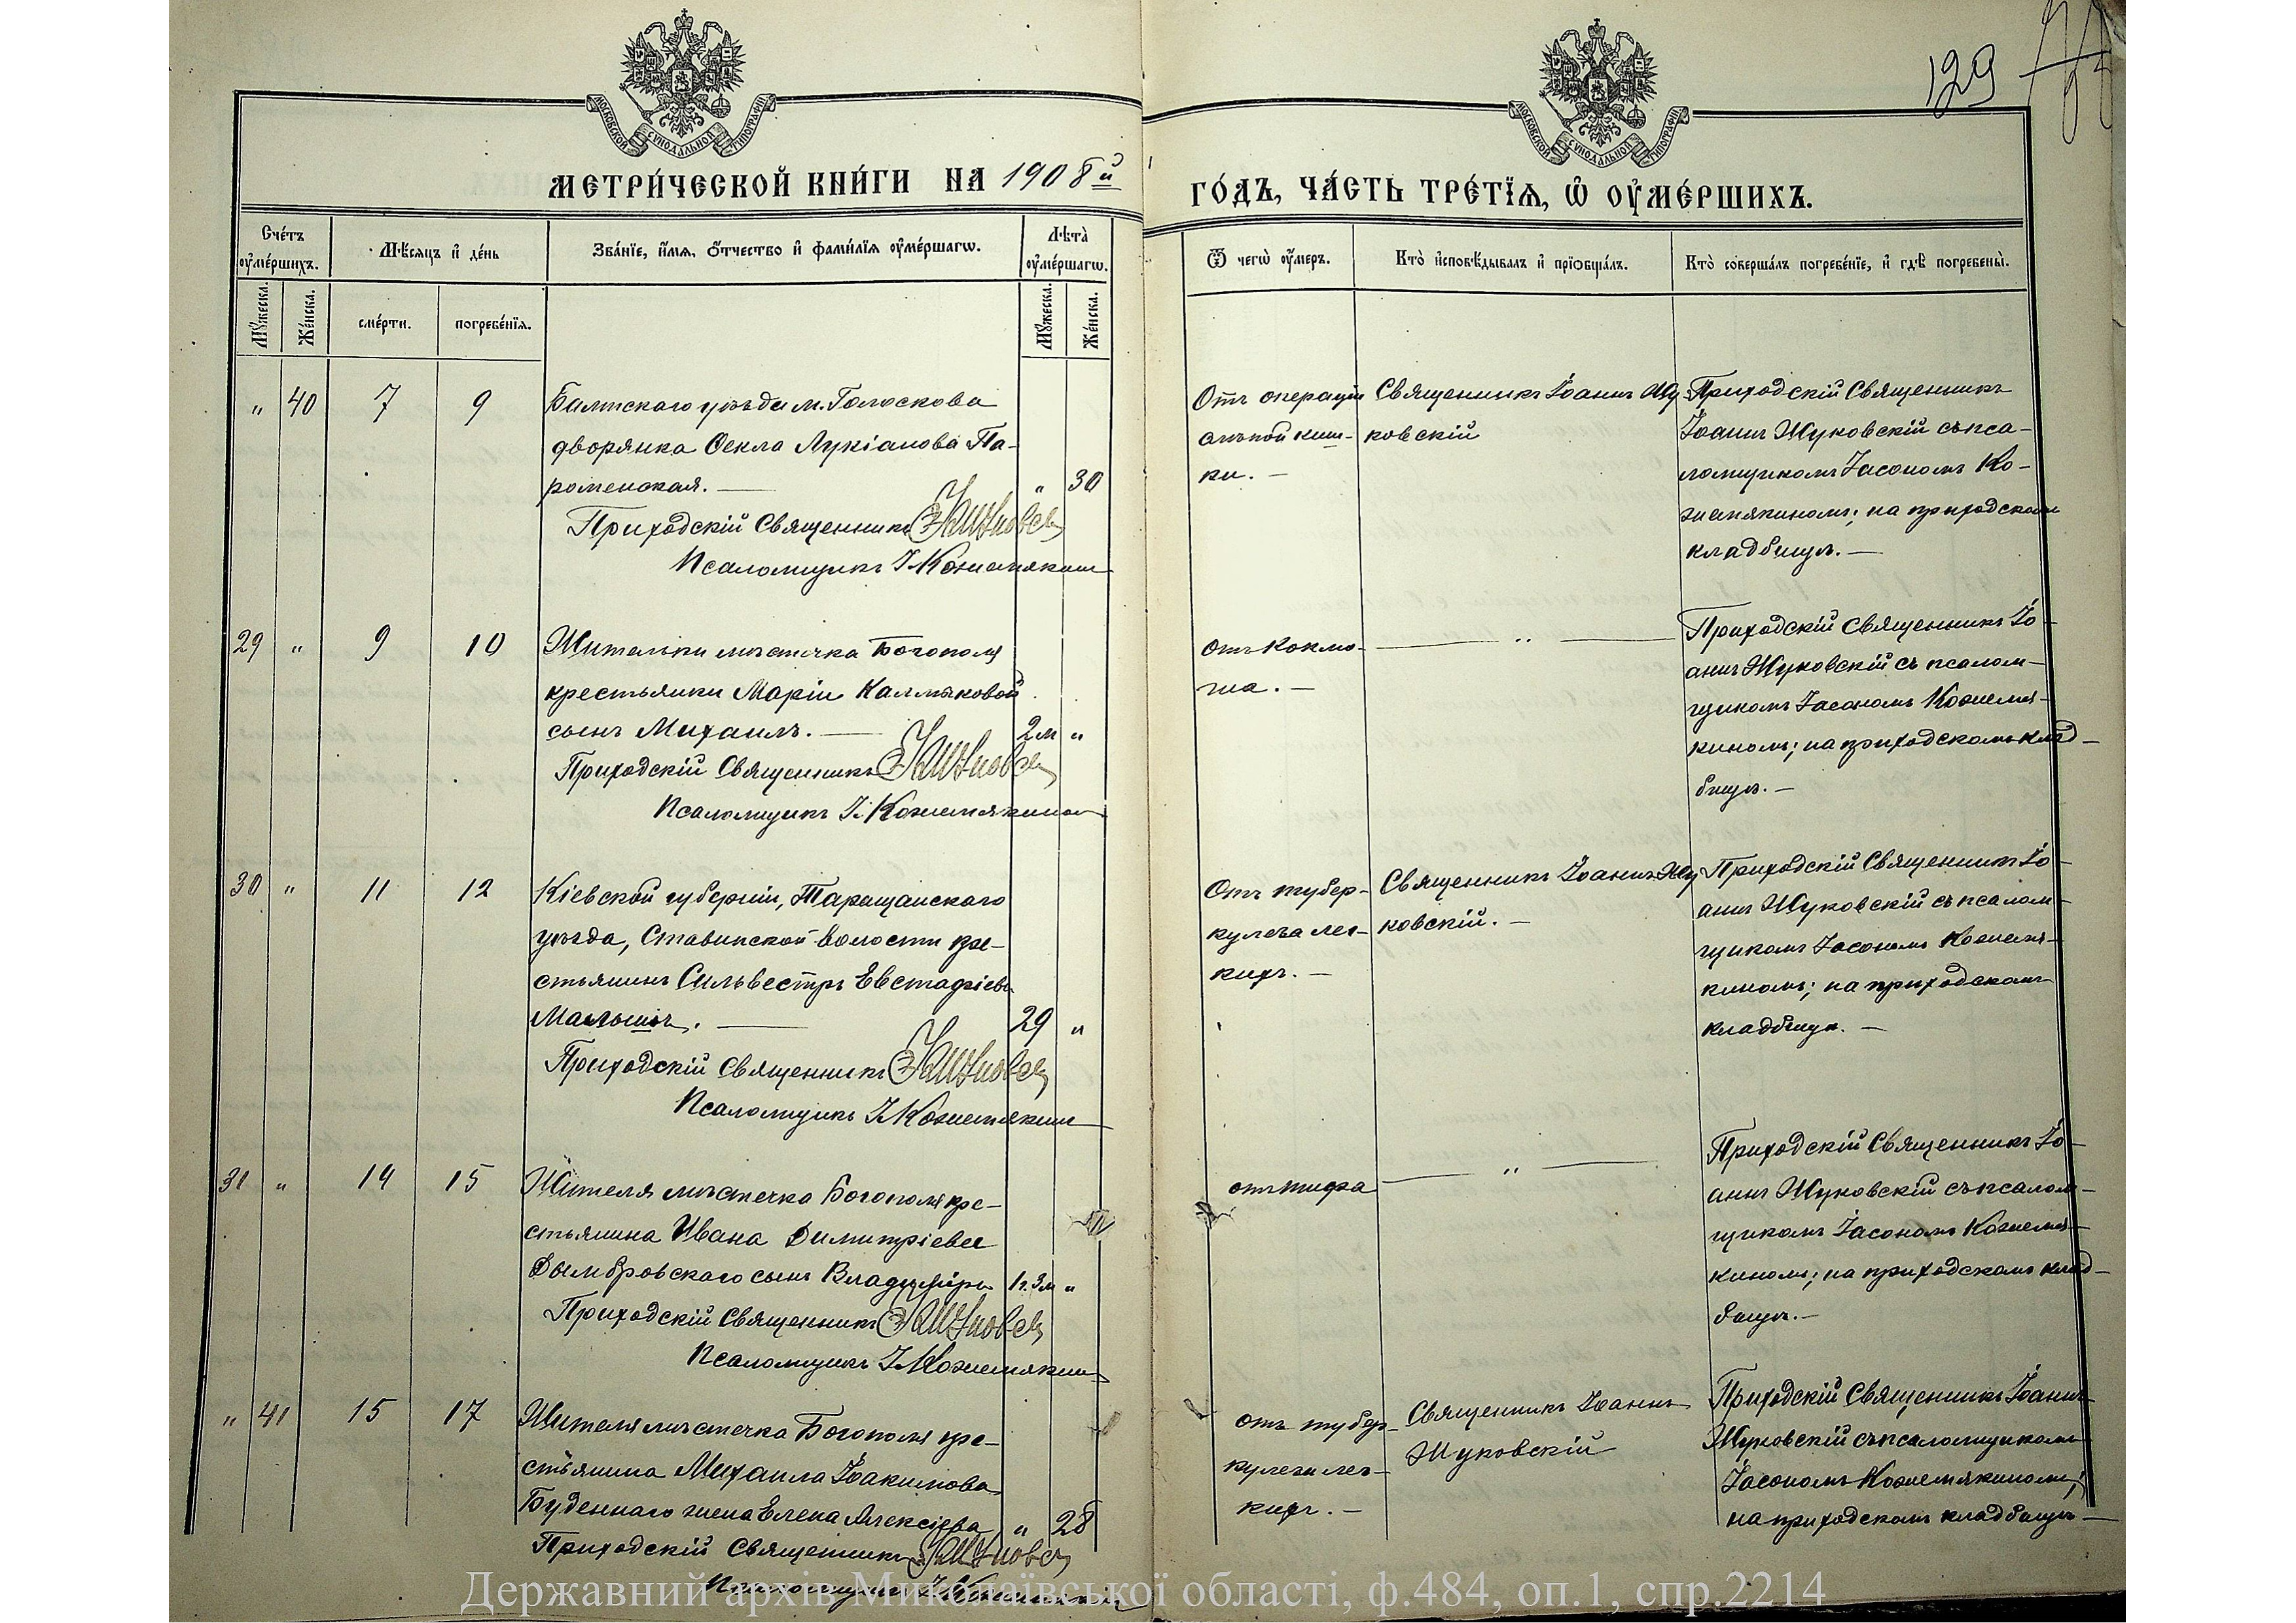 МОСКОВСКОЙ СѴНОДАЛЬНОЙ ТИПОГРАФІИ
МОСКОВСКОЙ СѴНОДАЛЬНОЙ ТИПОГРАФІИ
129
МЕТРИ́ЧЕСКОЙ КНИ́ГИ НА 1908й
ГО́ДЪ, ЧА́СТЬ ТРЕ́ТЇѦ, Ѡ҆ ОУ҆МЕ́РШИХЪ.
Сче́тъ оу҆ме́ршихъ.
Мѣ́сяцъ и҆ де́нь
Зва́нїе, и҆́мя, ѻ҆́тчество и҆ фами́лїя оу҆ме́ршагѡ.
Лѣта̀ оу҆ме́ршагѡ.
Ѿ чегѡ̀ оу҆́меръ.
Кто̀ и҆сповѣ́дывалъ и҆ прїѻбща́лъ.
Кто̀ соверша́лъ погребе́нїе, и҆ гдѣ̀ погребены̀.
Му́жеска.
Же́нска.
сме́рти.
погребе́нїя.
Му́жеска.
Же́нска.
" 40 7 9
Балтскаго уѣзда м. Голоскова
дворянка Ѳекла Лукіанова Па-
роменская. — " 30
Приходскій Священникъ
Псаломщикъ І. Кожемякин
Отъ операціи
слѣпой киш-
ки. —
Священникъ Іоаннъ Жу
ковскій
Приходскій Священникъ
Іоаннъ Жуковскій съ пса-
ломщикомъ Іасономъ Ко-
жемякиномъ; на приходскомъ
кладбищѣ. —
29 " 9 10
Жительки мѣстечка Богополя
крестьянки Маріи Калмыковой
сынъ Михаилъ. — 2 м "
Приходскій Священникъ
Псаломщикъ І. Кожемякинъ
отъ коклю-
ша. —
— " —
Приходскій Священникъ Іо-
аннъ Жуковскій съ псалом-
щикомъ Іасономъ Кожемя-
киномъ; на приходскомъ клад-
бищѣ. —
30 " 11 12
Кіевской губерніи, Таращанскаго
уѣзда, Ставинской волости кре-
стьянинъ Сильвестръ Евстафіевъ
— 29 "
Приходскій Священникъ
Псаломщикъ І. Кожемякин
Отъ тубер-
кулеза лег-
кихъ. —
Священникъ Іоаннъ Жу
ковскій. —
Приходскій Священникъ Іо-
аннъ Жуковскій съ псалом-
щикомъ Іасономъ Кожемя-
киномъ; на приходскомъ
кладбищѣ. —
31 " 14 15
Жителя мѣстечка Богополя кре-
стьянина Ивана Димитріева
Дымбровскаго сынъ Владиміръ 1 г. 3 м "
Приходскій Священникъ
Псаломщикъ І. Кожемякин
отъ тифа
— " —
Приходскій Священникъ Іо-
аннъ Жуковскій съ псалом-
щикомъ Іасономъ Кожемя-
киномъ; на приходскомъ клад-
бищѣ. —
" 41 15 17
Жителя мѣстечка Богополя кре-
стьянина Михаила Іоакимова
Буденнаго жена Елена Алексіева " 28
Приходскій Священникъ
Псаломщикъ
отъ тубер-
кулеза лег-
кихъ. —
Священникъ Іоаннъ
Жуковскій
Приходскій Священникъ Іоаннъ
Жуковскій съ псаломщикомъ
Іасономъ Кожемякиномъ;
на приходскомъ кладбищѣ —
Державний архів Миколаївської області, ф.484, оп.1, спр.2214